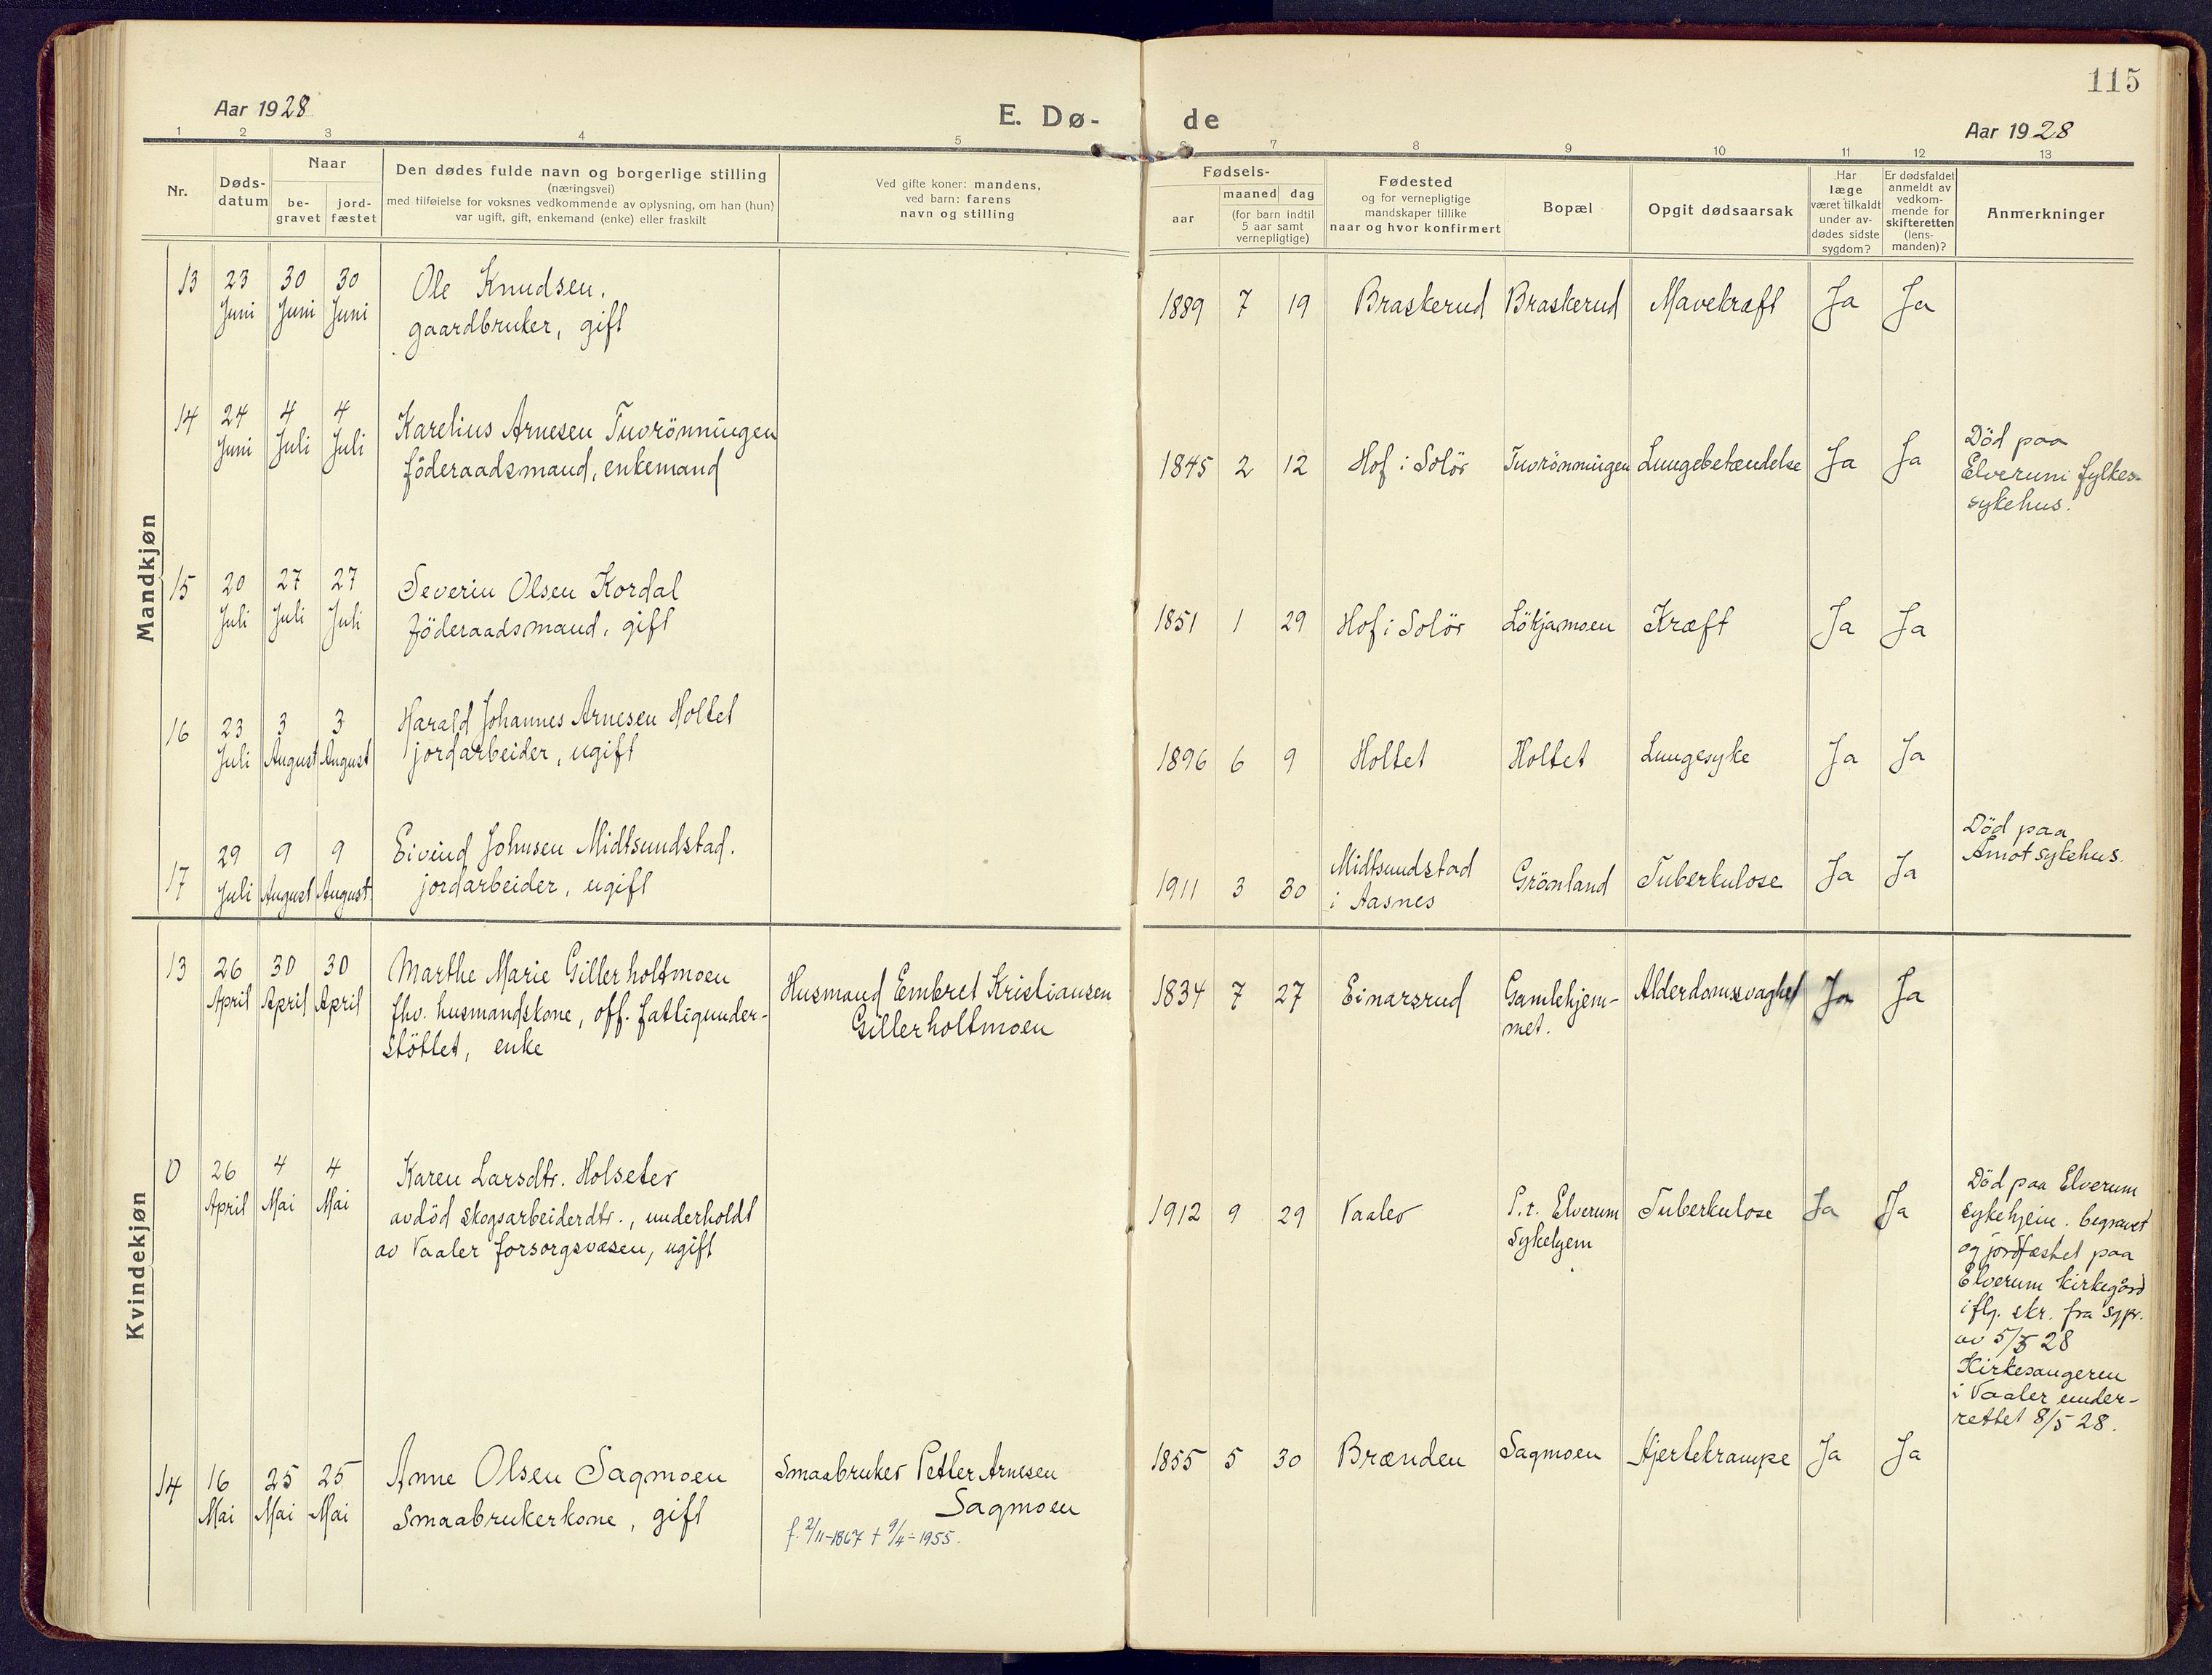 115
Aar 1928
E. Dø-
de
Aar 1928
1 2 3 4 5 6 7 8 9 10 11 12 13
Nr.
Døds-
datum
Naar
be-
gravet
jord-
fæstet
Den dødes fulde navn og borgerlige stilling
(næringsvei)
med tilføielse for voksnes vedkommende av oplysning, om han (hun)
var ugift, gift, enkemand (enke) eller fraskilt
Ved gifte koner: mandens,
ved barn: farens
navn og stilling
Fødsels-
aar
maaned dag
(for barn indtil
5 aar samt
vernepligtige)
Fødested
og for vernepligtige
mandskaper tillike
naar og hvor konfirmert
Bopæl
Opgit dødsaarsak
Har
læge
været tilkaldt
under av-
dødes sidste
sygdom?
Er dødsfaldet
anmeldt av
vedkom-
mende for
skifteretten
(lens-
manden)?
Anmerkninger
Mandkjøn
13 23 Juni 30 Juni 30 Juni
Ole Knudsen,
gaardbruker, gift
1889 7 19 Braskerud Braskerud Mavekræft Ja Ja
14 24 Juni 4 Juli 4 Juli
Karelius Arnesen Tuvrönningen
föderaadsmand, enkemand
1845 2 12 Hof i Solör Tuvrönningen Lungebetændelse Ja Ja
Död paa
Elverum fylkes-
sykehus.
15 20 Juli 27 Juli 27 Juli
Severin Olsen Kordal
föderaadsmand, gift
1851 1 29 Hof i Solör Lökjamoen Kræft Ja Ja
16 23 Juli 3 August 3 August
Harald Johannes Arnesen Holtet
jordarbeider, ugift
1896 6 9 Holtet Holtet Lungesyke Ja Ja
17 29 Juli 9 August 9 August
Eivind Johnsen Midtsundstad.
jordarbeider, ugift
1911 3 30 Midtsundstad
i Aasnes
Grönland Tuberkulose Ja Ja
Död paa
Åmot sykehus.
Kvindekjøn
13 26 April 30 April 30 April
Marthe Marie Gillerholtmoen
fhv. husmandskone, off. fattigunder-
stöttet, enke
Husmand Embret Kristiansen
Gillerholtmoen
1834 7 27 Einarsrud Gamlehjem-
met.
Alderdomssvaghet Ja Ja
0 26 April 4 Mai 4 Mai
Karen Larsdtr. Holseter
avdöd skogsarbeiderdtr., underholdt
av Vaaler forsorgsvæsen, ugift
1912 9 29 Vaaler P.t. Elverum
Sykehjem
Tuberkulose Ja Ja
Död paa Elverum
sykehjem. begravet
og jordfæstet paa
Elverum kirkegård
iflg. skr. fra sgpr.
av 5/5 28
Kirkesangeren
i Vaaler under-
rettet 8/5 28.
14 16 Mai 25 Mai 25 Mai
Anne Olsen Sagmoen
Smaabrukerkone, gift
Smaabruker Petter Arnesen
Sagmoen
f. 2/11-1867 + 9/4-1955.
1855 5 30 Brænden Sagmoen Hjertekrampe Ja Ja